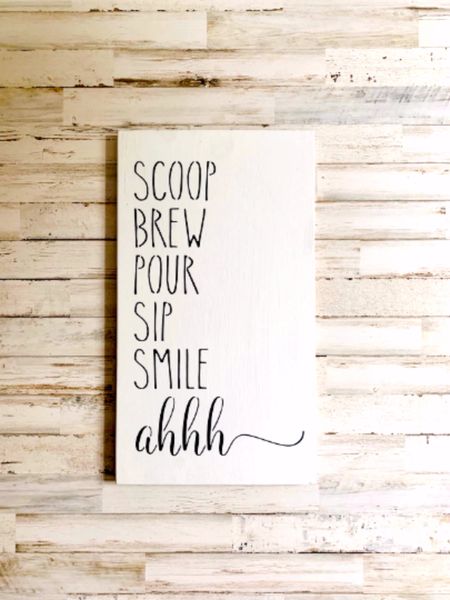 SCOOP
BREW
POUR
SIP
SMILE
ahhh